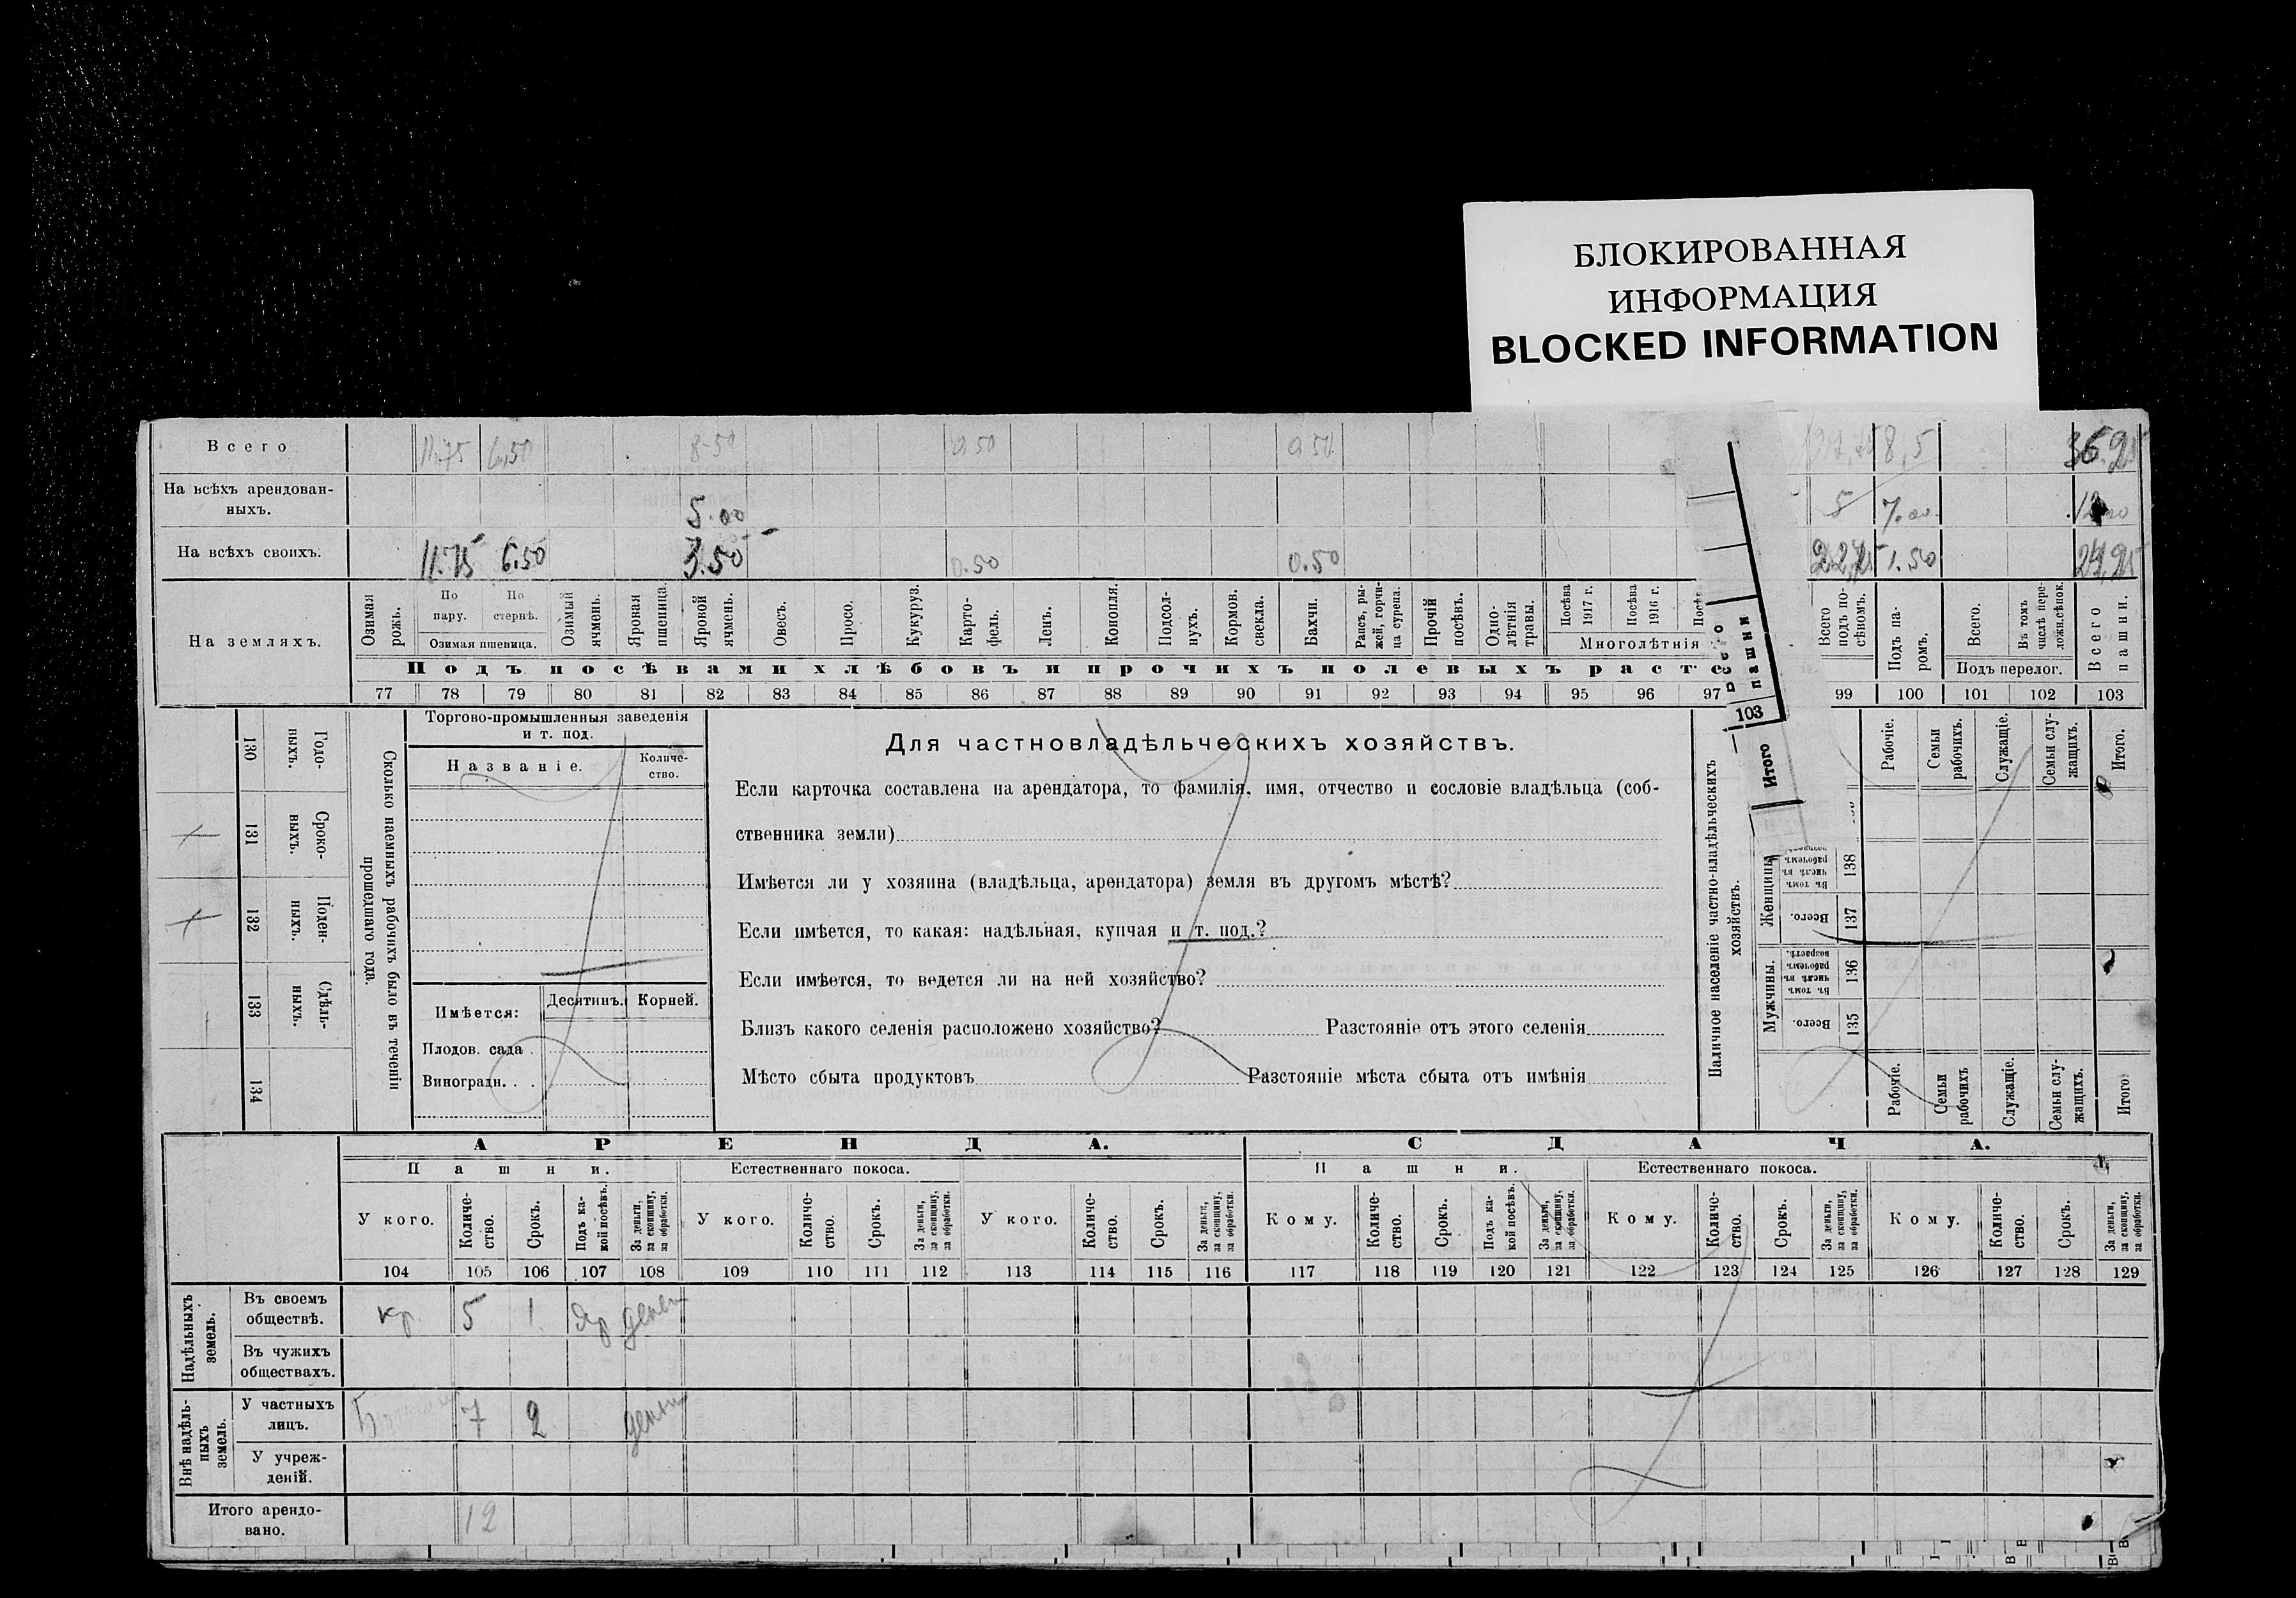 БЛОКИРОВАННАЯ
ИНФОРМАЦИЯ
BLOCKED INFORMATION
Всего 11.75 6.50 8-50 0.50 0.50 8,5
На всѣхъ арендован-
ныхъ. 5.00 5 7.00
На всѣхъ своихъ. 11.75 6.50 3.50 0.50 0.50 1.50
На земляхъ.
Озимая рожь.
По пару.
По стернѣ.
Озимая пшеница.
Озимый ячмень.
Яровая пшеница.
Яровой ячмень.
Овесъ.
Просо.
Кукуруз.
Карто-
фель.
Ленъ.
Конопля.
Подсол-
нухъ.
Кормов.
свекла.
Бахчи.
Рапсъ, ры-
жей, горчи-
ца сурепа.
Прочій
посѣвъ.
Одно-
лѣтнія
травы.
Посѣва
1917 г.
Посѣва
1916 г.
Посѣ
Многолѣтнія
пашни
Всего
подъ по-
сѣвомъ.
Подъ па-
ромъ.
Всего.
Въ томъ
числѣ пере-
лож.сѣнок.
Подъ перелог.
Всего
пашни.
Подъ посѣвами хлѣбовъ и прочихъ полевыхъ расте
77 78 79 80 81 82 83 84 85 86 87 88 89 90 91 92 93 94 95 96 97 103 99 100 101 102 103
Годо-
ныхъ.
130
Сроко-
ныхъ.
131
Поден-
ныхъ.
132
Сдѣль-
ныхъ.
133
134
Сколько наемныхъ рабочихъ было въ теченіи
прошедшаго года.
Торгово-промышленныя заведенія
и т. под.
Названіе.
Количе-
ство.
Имѣется: Десятинъ. Корней.
Плодов. сада .
Виноградн. . .
Для частновладѣльческихъ хозяйствъ.
Если карточка составлена на арендатора, то фамилія, имя, отчество и сословіе владѣльца (соб-
ственника земли)
Имѣется ли у хозяина (владѣльца, арендатора) земля въ другомъ мѣстѣ?
Если имѣется, то какая: надѣльная, купчая и т. под.?
Если имѣется, то ведется ли на ней хозяйство?
Близъ какого селенія расположено хозяйство? Разстояніе отъ этого селенія
Мѣсто сбыта продуктовъ Разстояніе мѣста сбыта отъ имѣнія
Наличное населеніе частно-владѣльческихъ
хозяйствъ.
Итого
Женщины
Въ томъ
числѣ въ
рабочемъ
138
Всего.
137
Мужчины.
Въ томъ
числѣ въ
рабочемъ
возрастѣ.
136
Всего.
135
Рабочіе.
Семьи
рабочихъ.
Служащіе.
Семьи слу-
жащихъ.
Итого.
Рабочіе.
Семьи
рабочихъ
Служащіе.
Семьи слу-
жащихъ.
Итого.
АРЕНДА. СДАЧА.
Пашни. Естественнаго покоса. Пашни. Естественнаго покоса.
У кого.
Количе-
ство.
Срокъ.
Подъ ка-
кой посѣвъ.
За деньги,
за скопщину,
за обработки.
У кого.
Количе-
ство.
Срокъ.
За деньги,
за скопщину,
за обработки.
У кого.
Количе-
ство.
Срокъ.
За деньги,
за скопщину,
за обработки.
Кому.
Количе-
ство.
Срокъ.
Подъ ка-
кой посѣвъ.
За деньги,
за скопщину,
за обработки.
Кому.
Количе-
ство.
Срокъ.
За деньги,
за скопщину,
за обработки.
Кому.
Количе-
ство.
Срокъ.
За деньги,
за скопщину,
за обработки.
104 105 106 107 108 109 110 111 112 113 114 115 116 117 118 119 120 121 122 123 124 125 126 127 128 129
Надѣльныхъ
земель.
Въ своемъ
обществѣ. кр. 5 1. Яр
Въ чужихъ
обществахъ.
Внѣ надѣль-
ныхъ
земель.
У частныхъ
лицъ. 7 2
У учреж-
деній.
Итого арендо-
вано. 12